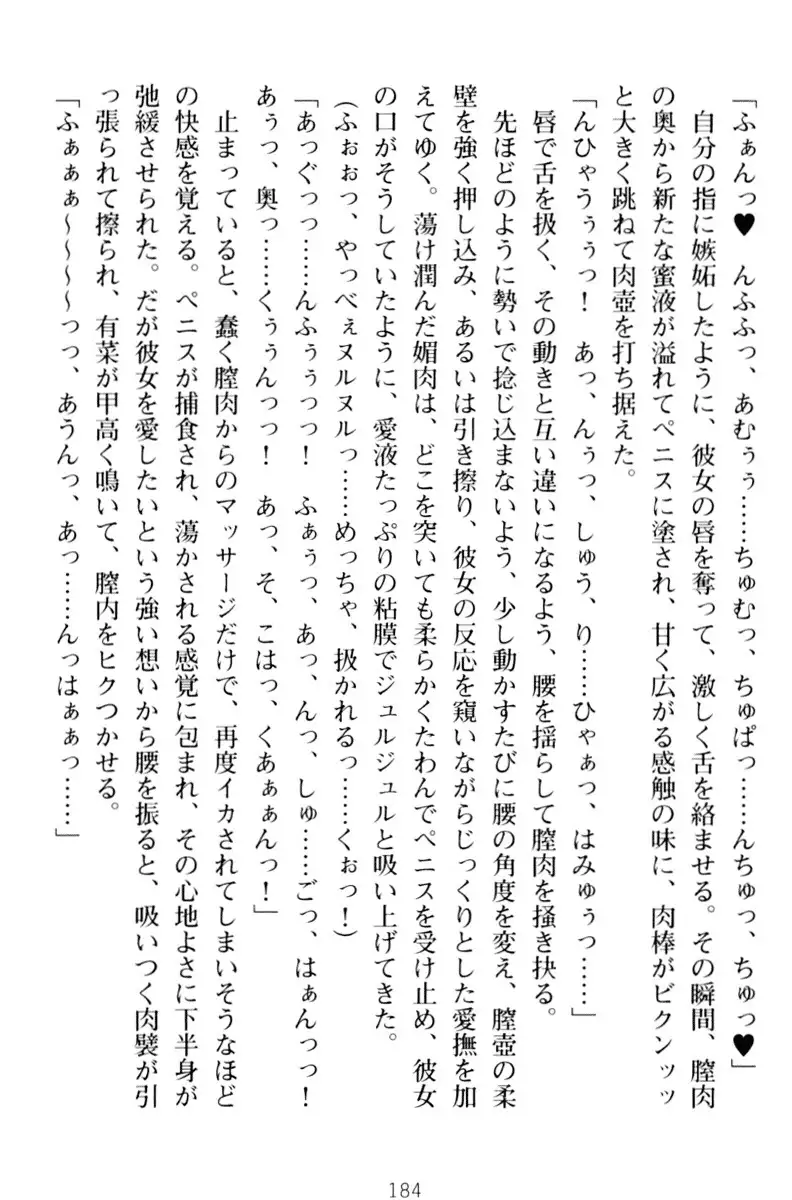 「ふぁんっ♥　んふふっ、あむぅぅ……ちゅむっ、ちゅぱっ……んちゅっ、ちゅっ♥」
　自分の指に嫉妬したように、彼女の唇を奪って、激しく舌を絡ませる。その瞬間、膣肉
の奥から新たな蜜液が溢れてペニスに塗され、甘く広がる感触の味に、肉棒がビクンッッ
と大きく跳ねて肉壺を打ち据えた。
「んひゃうぅぅっ！　あっ、んぅっ、しゅう、り……ひゃぁっ、はみゅぅっ……」
　唇で舌を扱く、その動きと互い違いになるよう、腰を揺らして膣肉を掻き抉る。
　先ほどのように勢いで捻じ込まないよう、少し動かすたびに腰の角度を変え、膣壺の柔
壁を強く押し込み、あるいは引き擦り、彼女の反応を窺いながらじっくりとした愛撫を加
えてゆく。蕩け潤んだ媚肉は、どこを突いても柔らかくたわんでペニスを受け止め、彼女
の口がそうしていたように、愛液たっぷりの粘膜でジュルジュルと吸い上げてきた。
（ふぉぉっ、やっべぇヌルヌルっ……めっちゃ、扱かれるっ……くぉっ！）
「あっぐっっ……んふぅぅっっ！　ふぁぅっ、あっ、んっ、しゅ……ごっ、はぁんっっ！
あぅっ、奥っ……くぅぅんっっ！　あっ、そ、こはっ、くあぁぁんっ！」
　止まっていると、蠢く膣肉からのマッサージだけで、再度イカされてしまいそうなほど
の快感を覚える。ペニスが捕食され、蕩かされる感覚に包まれ、その心地よさに下半身が
弛緩させられた。だが彼女を愛したいという強い想いから腰を振ると、吸いつく肉襞が引
っ張られて擦られ、有菜が甲高く鳴いて、膣内をヒクつかせる。
「ふぁぁぁ～～～～っっ、あうんっ、あっ……んっはぁぁっ……」
184